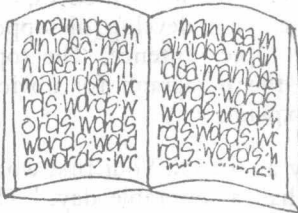 main idea m
ain idea · mai
n idea · main i
main idea. wo
rds. words. w
ords. words.
words. word
s words. wo
main idea m
ain idea. main
idea main idea
words. words
words. words. 
rds. words. wo
rds. words.